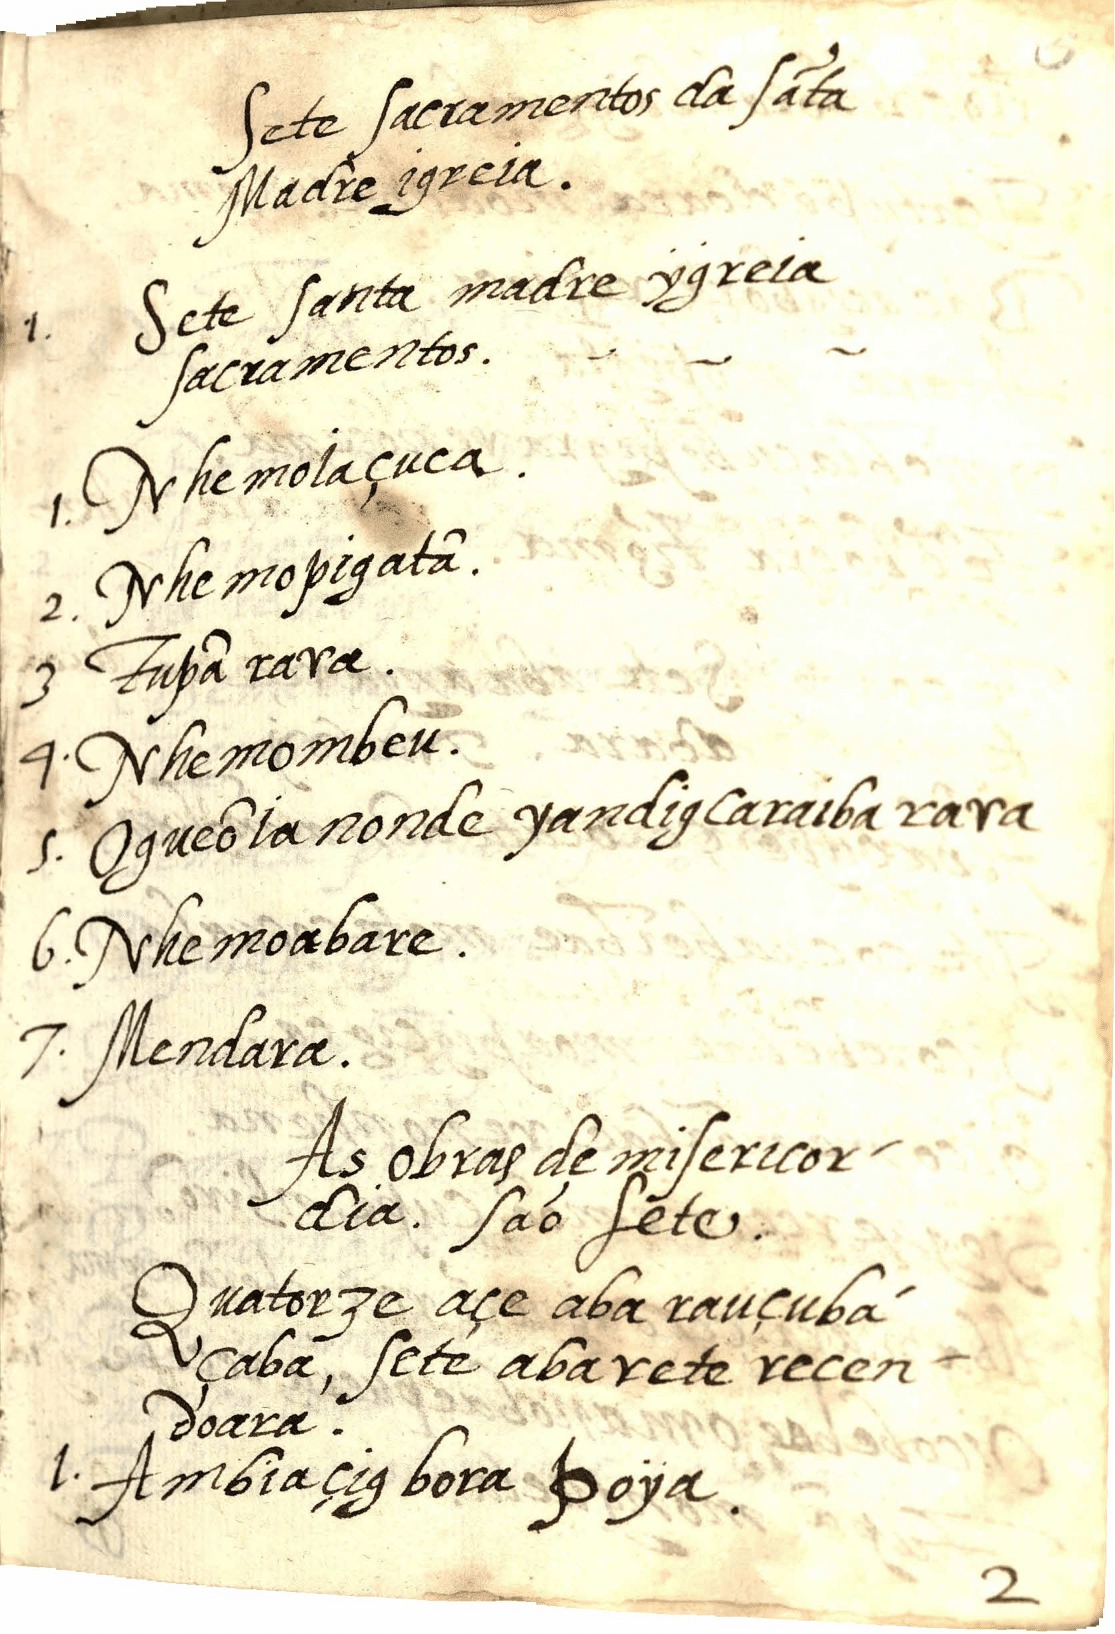 Sete sacramentos da sãta
Madre igreia.
1. Sete santa madre ÿgreia
sacramentos. ~ ~ ~
1. Nhemoiaçuca.
2. Nhemopigatã.
3 Tupã rara.
4. Nhemombeu.
5. Ogueõia nonde yandigcaraiba rara
6. Nhemoabare.
7. Mendara.
As obras de misericor-
dia. saõ sete.
Quatorze açe aba rauçubá-
çaba, sete aba rete recen-
doara.
1. Ambiaçig bora poÿa.
2